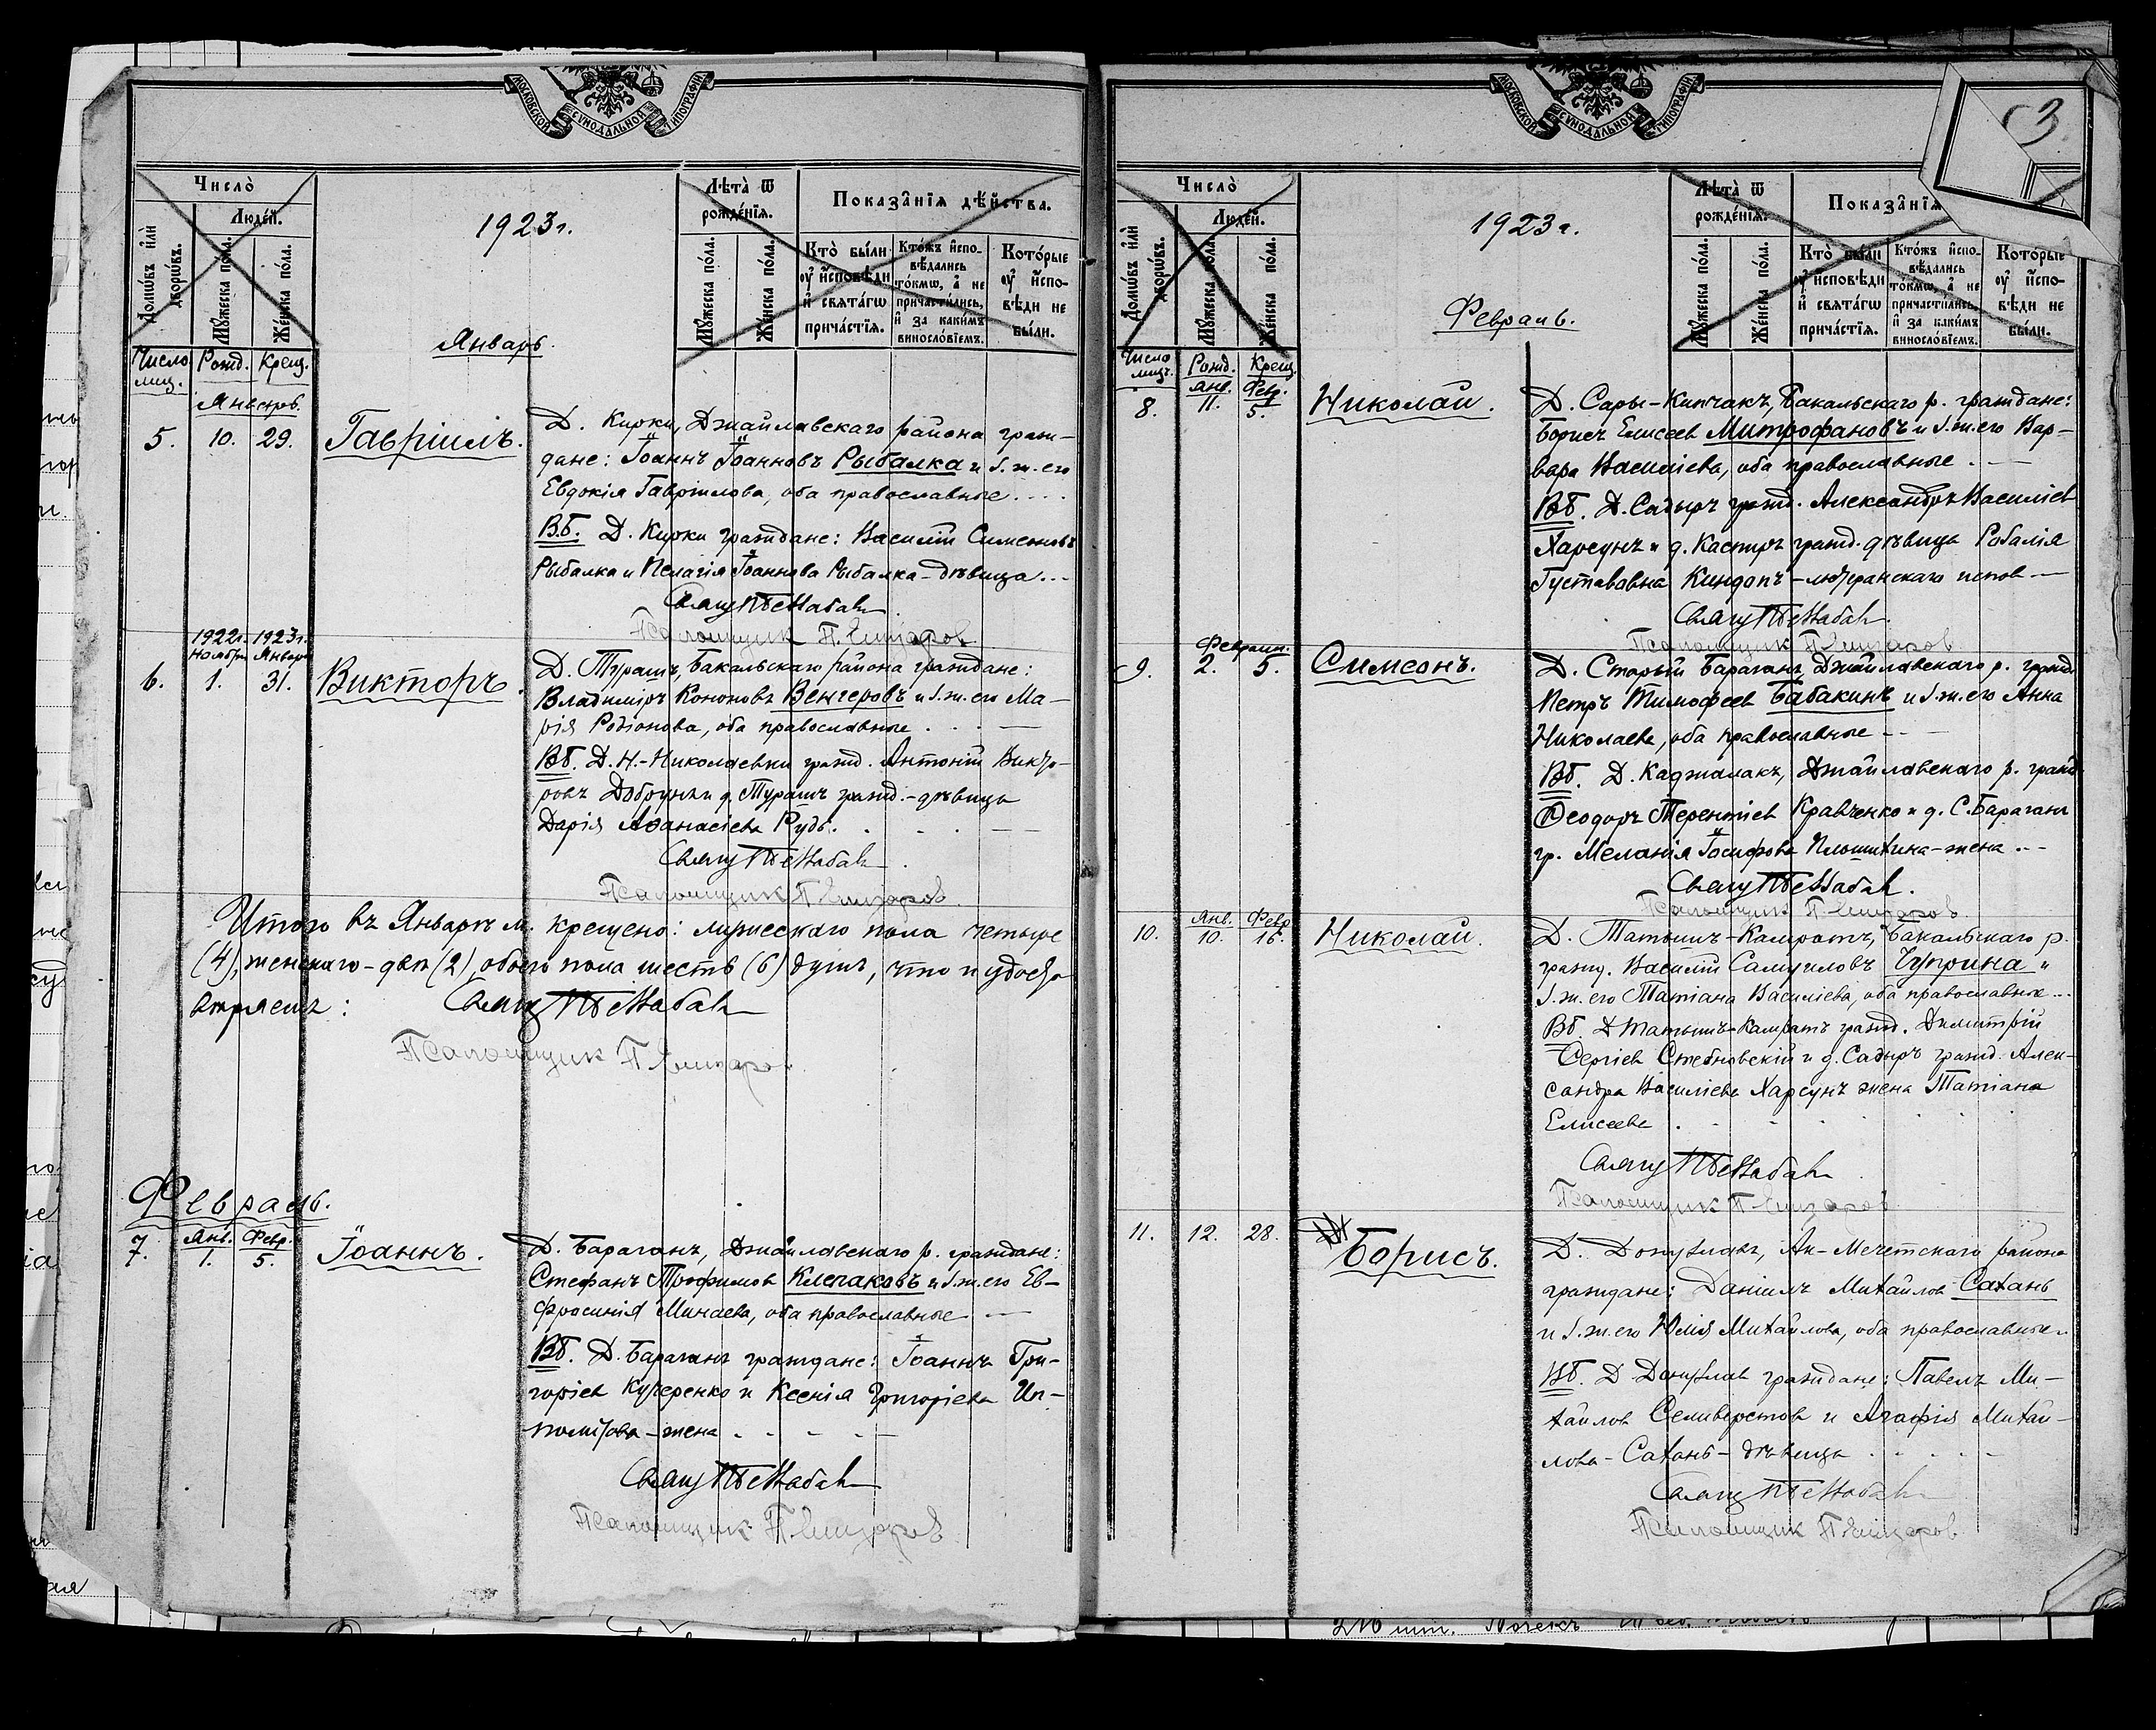 МОСКОВСКОЙ СѴНОДАЛЬНОЙ ТИПОГРАФІИ
Число̀
Люде́й.
Домѡ́въ и҆лѝ дворѡ́въ.
Мꙋ́жеска по́ла.
Же́нска по́ла.
1923 г.
Январь.
Лѣ́та ѿ рожде́нїѧ.
Мꙋ́жеска по́ла.
Же́нска по́ла.
Показа̑нїѧ дѣ́йства.
Кто̀ бы́ли ᲂу҆ и҆сповѣ́ди и҆ свѧта́гѡ прича́стїѧ.
Кто́жъ и҆спо-
вѣ́дались
то́кмѡ, а҆ не
причасти́лись,
и҆ за каки́мъ
виносло́вїемъ.
Кото́рые ᲂу҆ и҆спо-
вѣ́ди не бы́ли.
Число лиц. Рожд. Крещ.
Январь.
5. 10. 29. Гавріилъ.
Д. Кирки, Джайлавскаго района граж-
дане: Іоаннъ Іоанновъ Рыбалка и з. ж. его
Евдокія Гавріилова, оба православные....
В.б. Д. Кирки граждане: Василій Симеоновъ
Рыбалка и Пелагія Іоаннова Рыбалка - дѣвица...
Псаломщик П.
1922 г. 1923 г.
Ноября Января
6. 1. 31. Викторъ.
Д. Турашъ, Бакальскаго района граждане:
Владиміръ Кононовъ Венгеровъ и з. ж. его Ма-
рія Родіонова, оба православные . . . —
Вб. Д. Н.-Николаевки гражд. Антоній Викто-
ровъ и д. Турашъ гражд. - дѣвица
Дарія Аѳанасіева Рудь. . . . —
Псаломщик П.
Итого въ Январѣ м. крещено: мужескаго пола четыре
(4), женскаго - двѣ (2), обоего пола шесть (6) душъ, что и удосто
вѣряемъ:
Псаломщик П.
Февраль.
Янв. Февр.
7. 1. 5. Іоаннъ.
Д. Бараганъ, Джайлавскаго р. граждане:
Стефанъ Трофимовъ Клепаковъ и з. ж. его Ев-
фросинія Минаева, оба православные —
Вб. Д. Бараганъ граждане: Іоаннъ Гри-
горіев Кучеренко и Ксенія Григоріева Ип-
политова - жена . . - . —
Псаломщик П.
МОСКОВСКОЙ СѴНОДАЛЬНОЙ ТИПОГРАФІИ
3
Число̀
Люде́й.
Домѡ́въ и҆лѝ дворѡ́въ.
Мꙋ́жеска по́ла.
Же́нска по́ла.
1923 г.
Февраль.
Лѣ́та ѿ рожде́нїѧ.
Мꙋ́жеска по́ла.
Же́нска по́ла.
Показа̑нїѧ
Кто̀ бы́ли ᲂу҆ и҆сповѣ́ди и҆ свѧта́гѡ прича́стїѧ.
Кто́жъ и҆спо-
вѣ́дались
то́кмѡ, а҆ не
причасти́лись,
и҆ за каки́мъ
виносло́вїемъ.
Кото́рые ᲂу҆ и҆спо-
вѣ́ди не бы́ли.
Число лицъ. Рожд. Крещ.
Янв. Февр.
8. 11. 5. Николай.
Д. Сары-Кипчакъ, Бакальскаго р. граждане:
Борисъ Елисеев Митрофановъ и з. ж. его Вар-
вара Василіева, оба православные . —
Вб. Д. Садыръ гражд. Александръ Василіев
Харсунъ и д. гражд. дѣвица Розалія
Густавовна Киндопъ - лютеранскаго испов —
Псаломщик П.
Февраля.
9. 2. 5. Симеонъ.
Д. Старый Бараганъ, Джайлавскаго р. гражд.
Петръ Тимофеев Бабакинъ и з. ж. его Анна
Николаева, оба православные - —
Вб. Д. Каджалакъ, Джайлавскаго р. гражд.
Ѳеодоръ Терентіев Кравченко и д. С. Бараганъ
гр. Меланія Іосифова - жена . . —
Псаломщик П.
Янв. Февр.
10. 10. 16. Николай.
Д. Татышъ-Камратъ, Бакальскаго р.
гражд. Василій Самуиловъ Чуприна и
з. ж. его Татіана Василіева, оба православные...
Вб. Д. Татышъ-Камратъ гражд. Димитрій
Сергіев Стебновскій и д. Садыръ гражд. Алек-
сандра Василіева Харсунъ жена Татіана
Елисеева . -
Псаломщик П.
11. 12. 28. Борисъ.
Д. Донузлавъ, Ак-Мечетскаго района
граждане: Даніилъ Михайлов Сахань
и з. ж. его Юлія Михайлова, оба православные..
Вб. Д. Донузлав граждане: Павелъ Ми-
хайлов Селиверстов и Агафія Михай-
лова - Сахань - дѣвица . . . . -
Псаломщик П.